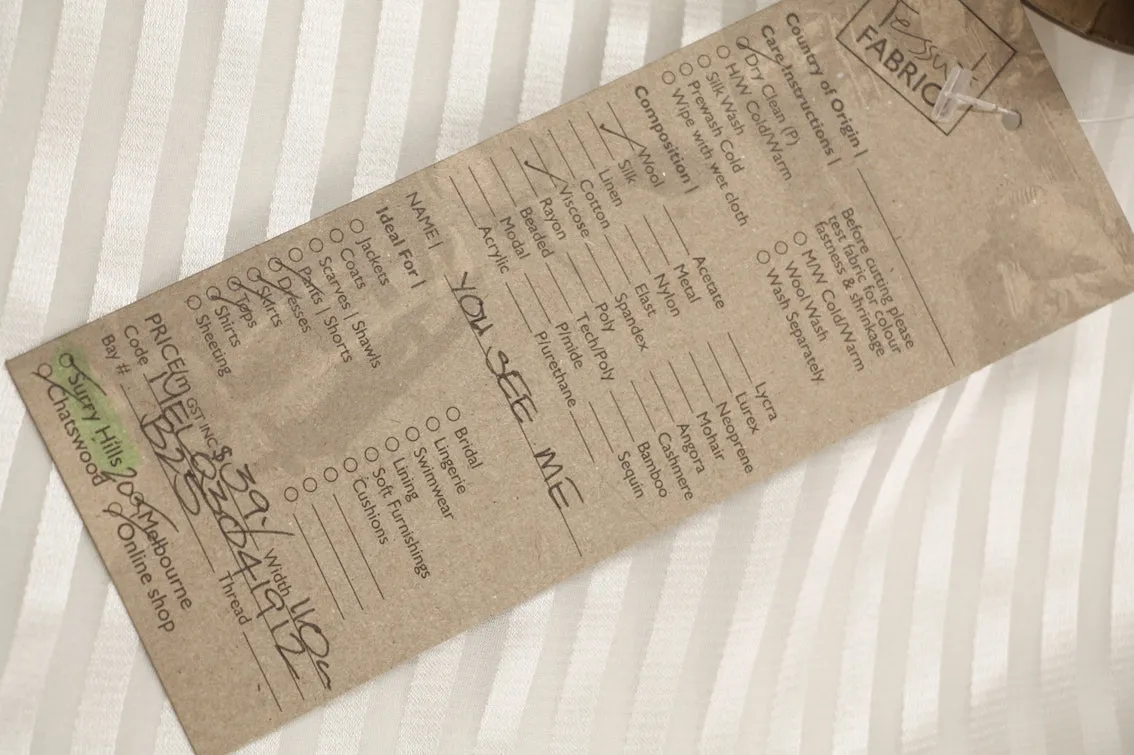 Tessuti
FABRICS
Country of Origin |
Care Instructions |
Dry Clean (P)
H/W Cold/Warm
Silk Wash
Prewash Cold
Wipe with wet cloth
Before cutting please
test fabric for colour
fastness & shrinkage
M/W Cold/Warm
Wool Wash
Wash Separately
Composition |
Wool
Silk
Linen
Cotton
Viscose
Rayon
Beaded
Modal
Acrylic
Acetate
Metal
Nylon
Elast
Spandex
Poly
Tech/Poly
P/mide
P/urethane
Lycra
Lurex
Neoprene
Mohair
Angora
Cashmere
Bamboo
Sequin
NAME | YOU SEE ME
Ideal For |
Jackets
Coats
Scarves | Shawls
Pants | Shorts
Dresses
Skirts
Tops
Shirts
Sheeting
Bridal
Lingerie
Swimwear
Lining
Soft Furnishings
Cushions
PRICE(m GST INC $39.- Width 110
Code MEL 0304-1912
Bay # B25 Thread
Surry Hills Melbourne
Chatswood Online shop